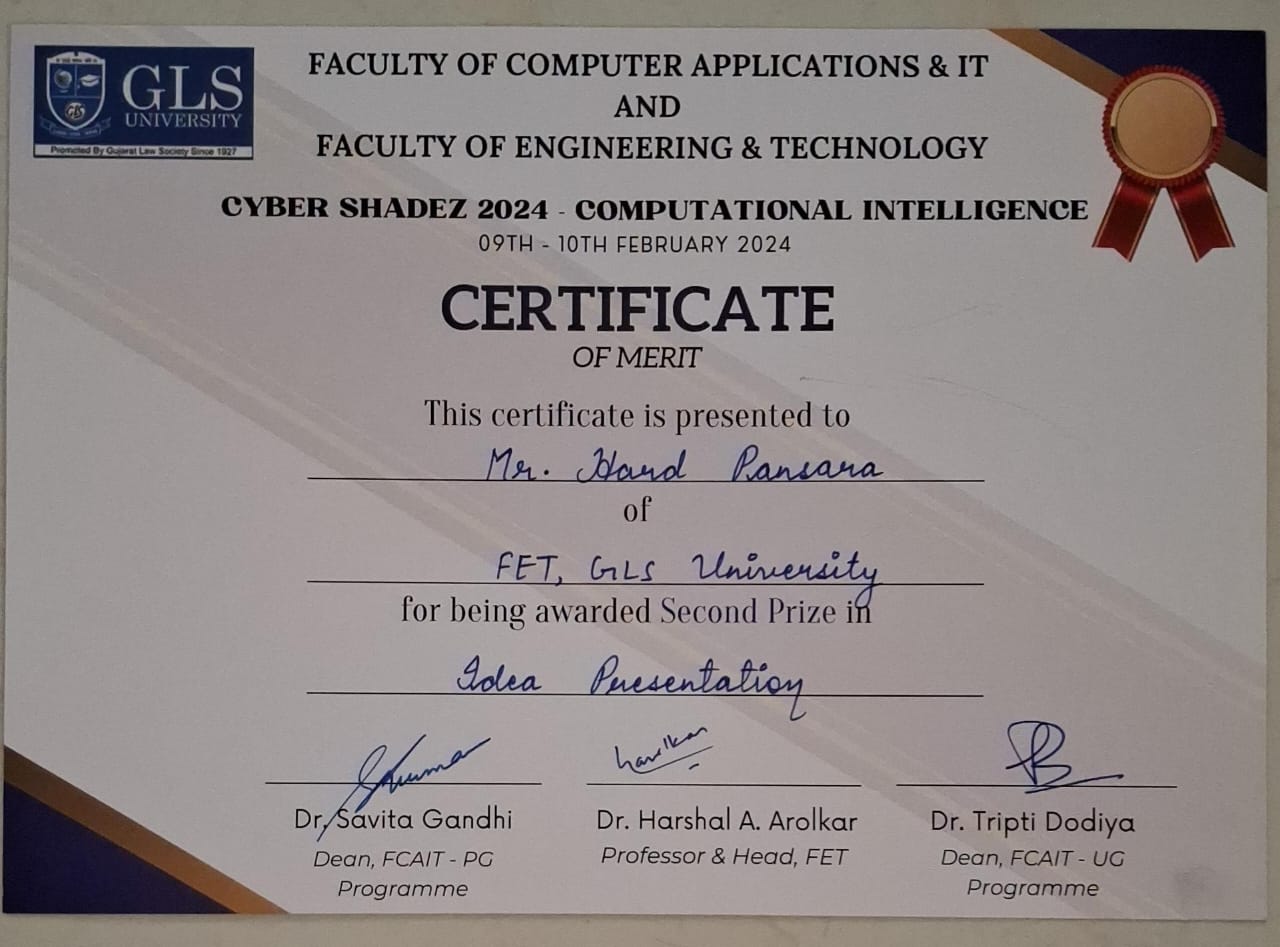 GLS
UNIVERSITY
Promoted By Gujarat Law Society Since 1927
FACULTY OF COMPUTER APPLICATIONS & IT
AND
FACULTY OF ENGINEERING & TECHNOLOGY
CYBER SHADEZ 2024 - COMPUTATIONAL INTELLIGENCE
09TH - 10TH FEBRUARY 2024
CERTIFICATE
OF MERIT
This certificate is presented to
Mr. Hard Pansara
of
FET, GLS University
for being awarded Second Prize in
Idea Presentation
Dr. Savita Gandhi
Dean, FCAIT - PG
Programme
Dr. Harshal A. Arolkar
Professor & Head, FET
Dr. Tripti Dodiya
Dean, FCAIT - UG
Programme